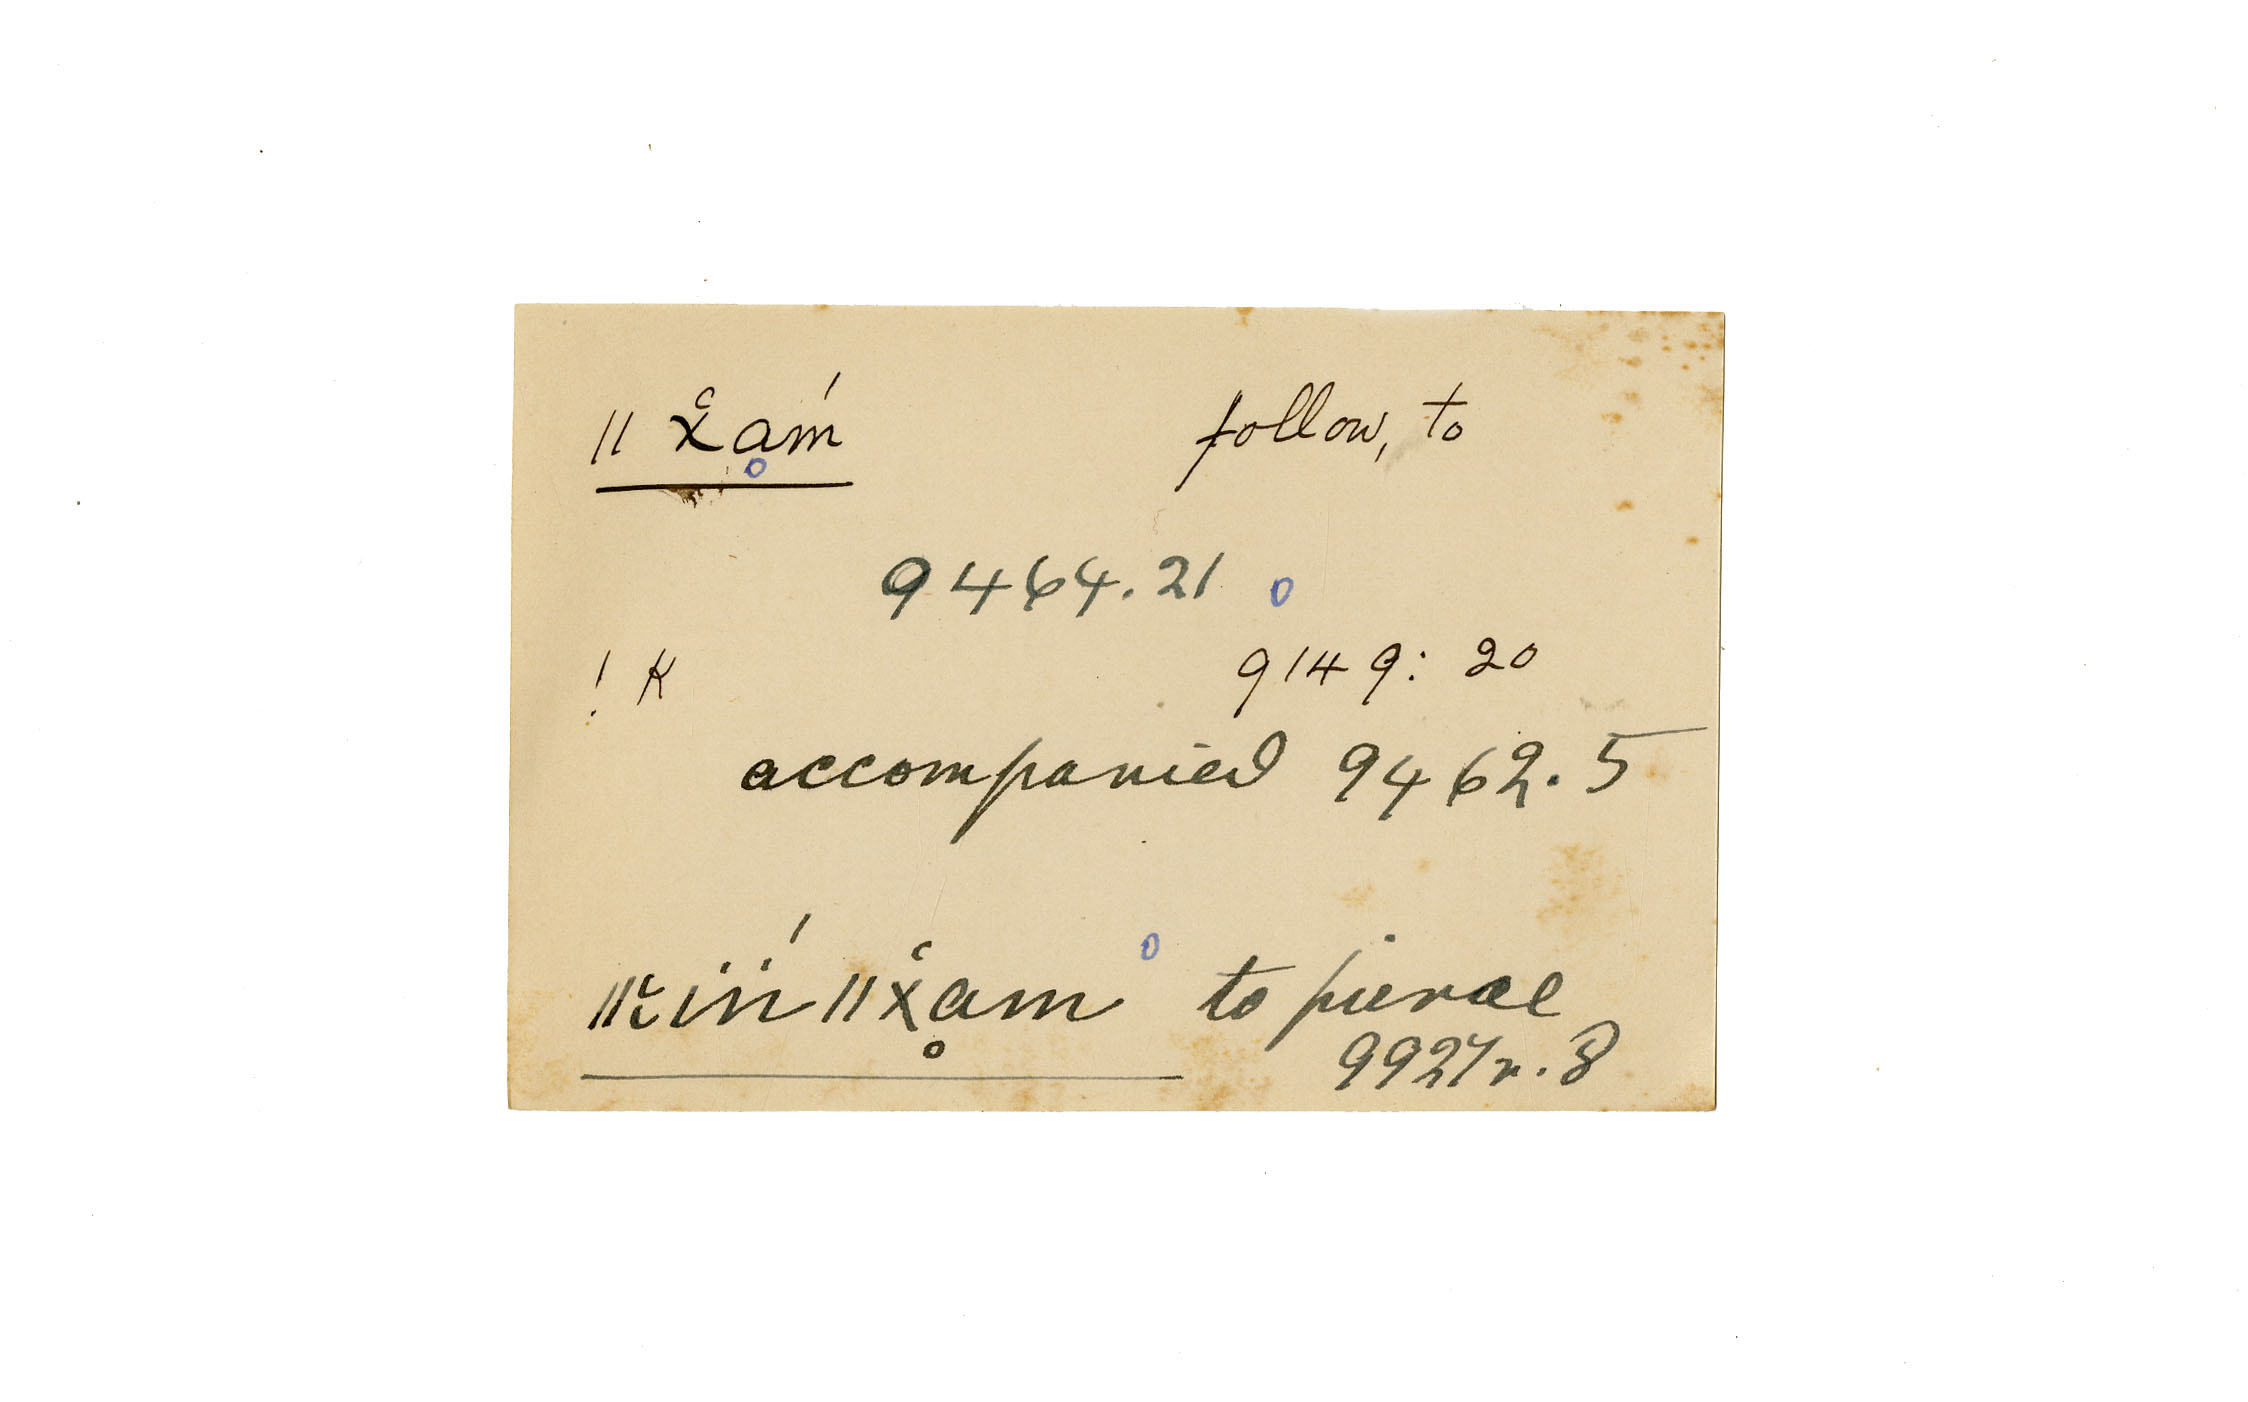 ǁ x̆ạḿ follow, to
9464.21 o
! K 9149: 20
accompanied 9462.5
ǁkïn̈́ ǁx̆ạm o to pierce
9927r.8